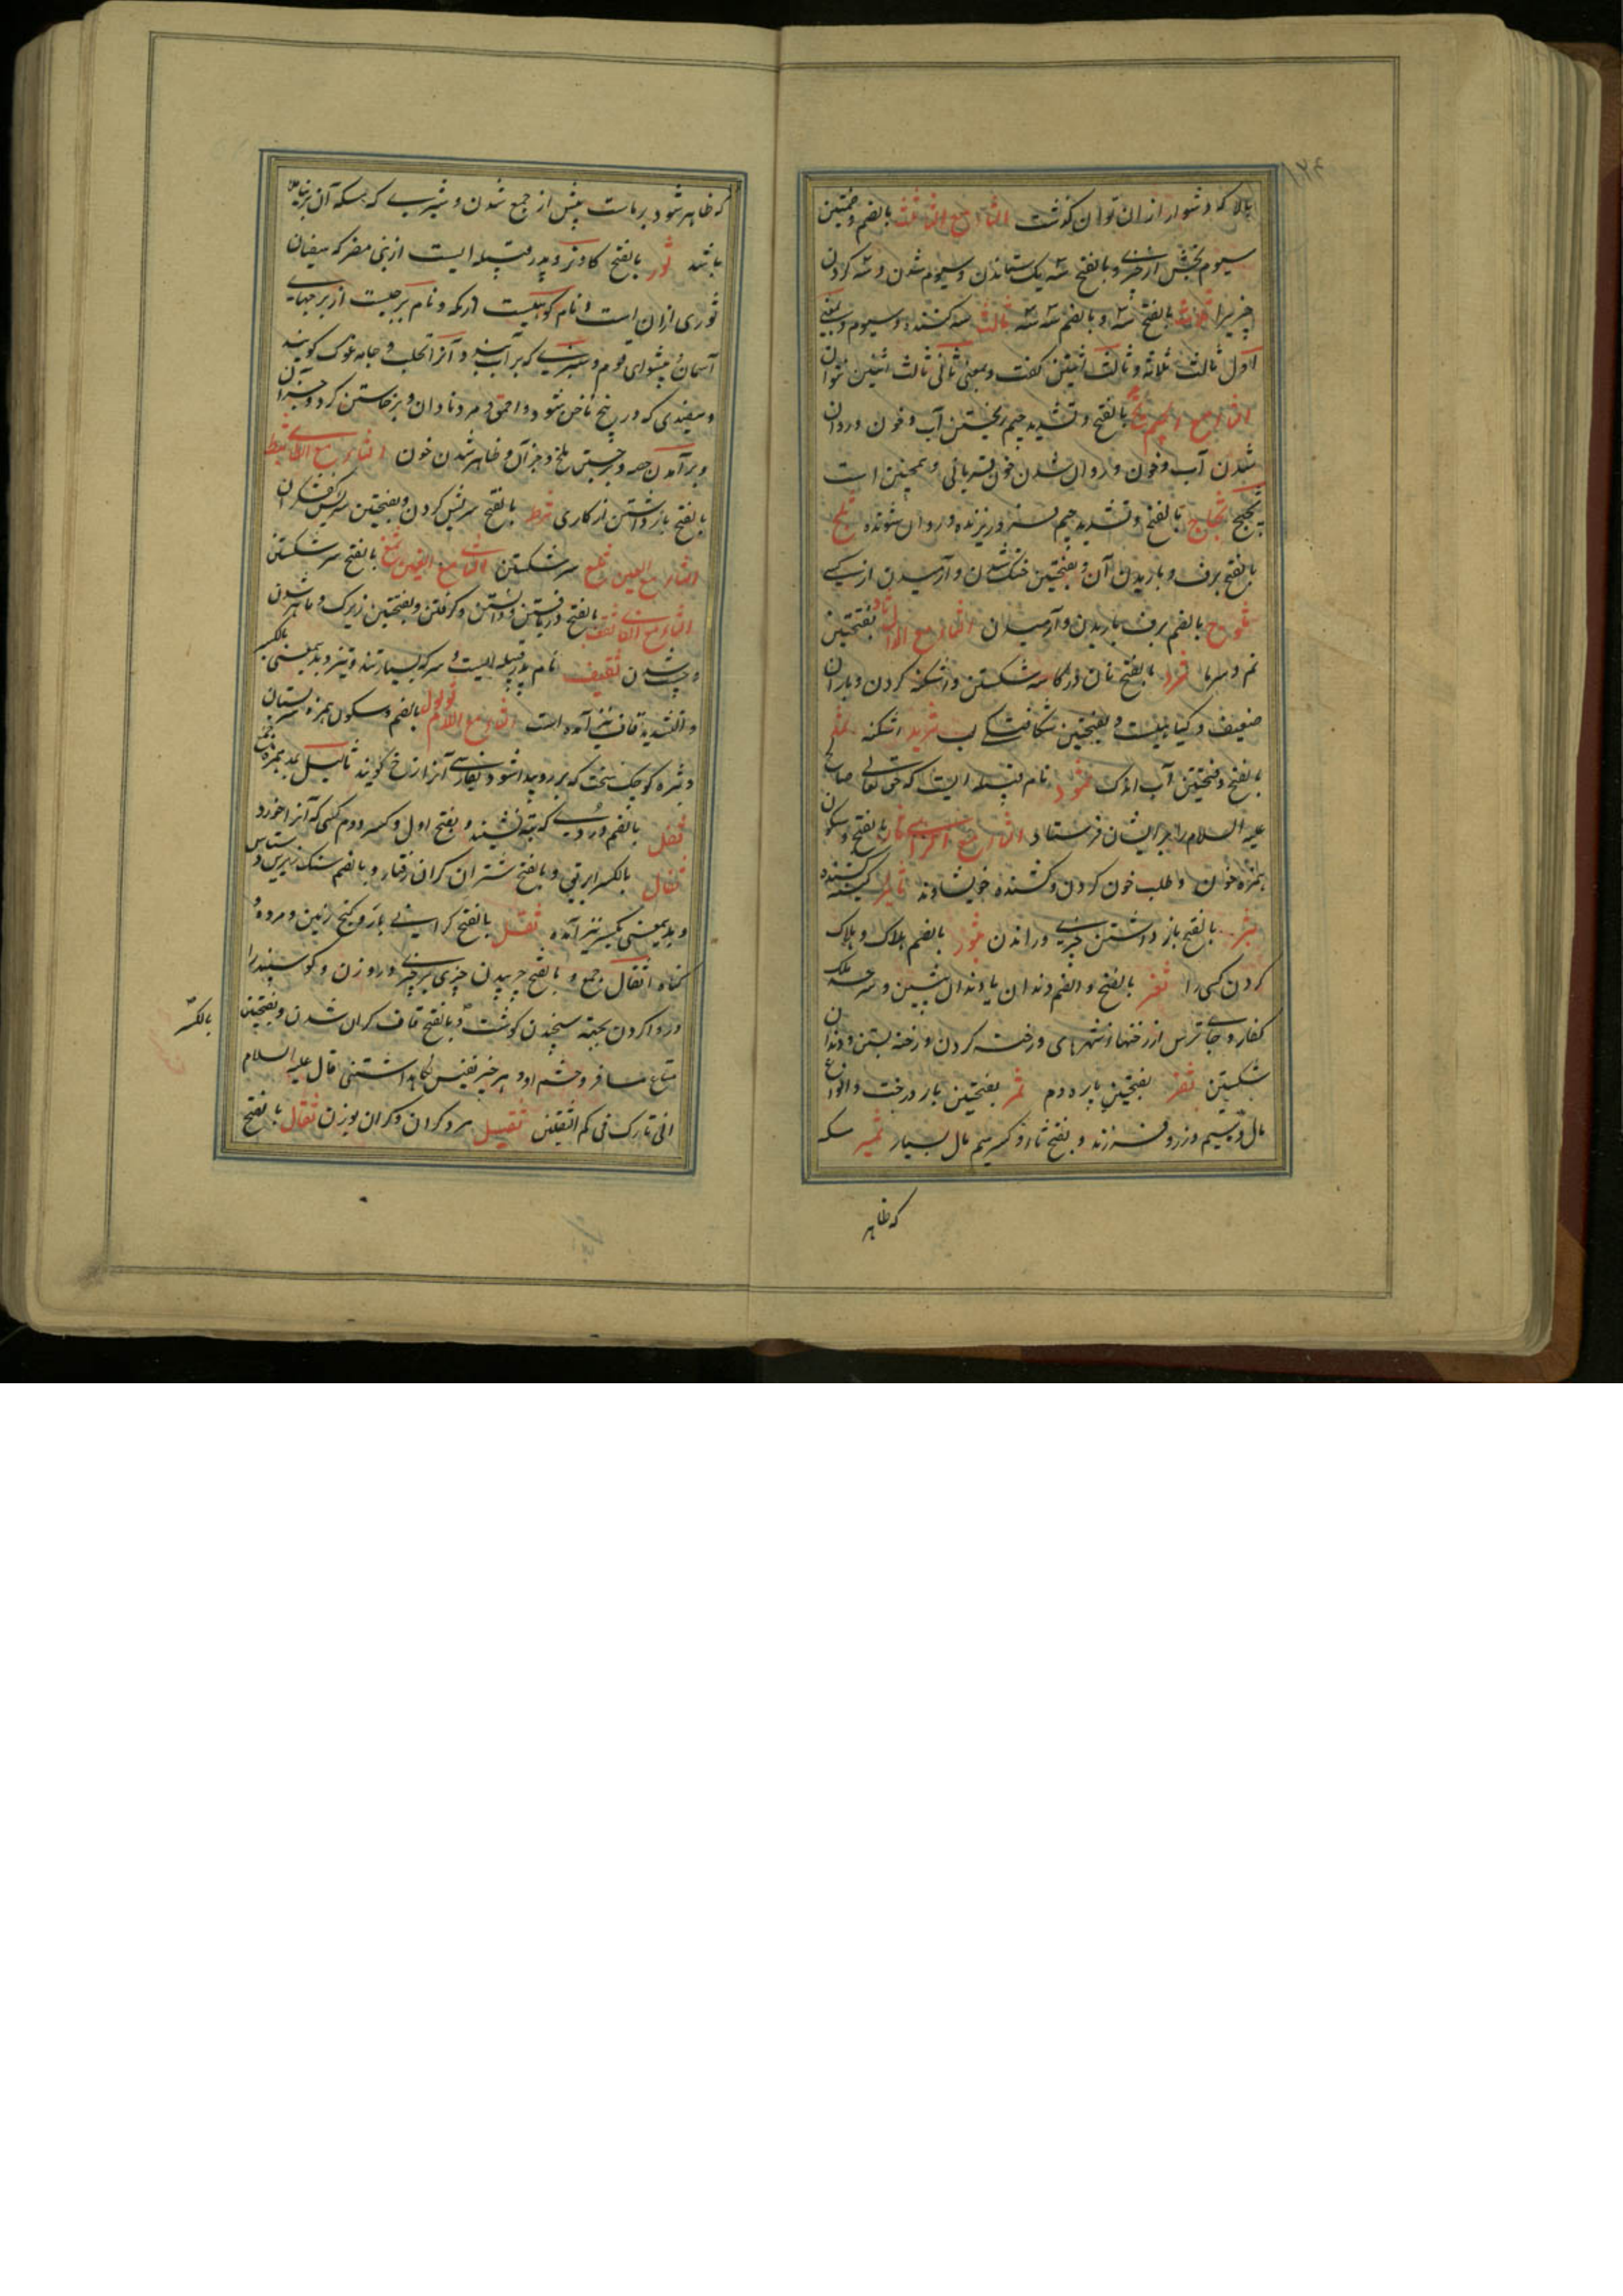 بالا که دشوار از ان توان گذشت الثاء مع الثاء ثلث بالضم و ضمتین
سیوم بخش از چیزی و بالفتح سه یک ستاندن و سیوم شدن و سه کردن
چیزیرا ثلاث بالفتح سه و بالضم سه سه ثالث سه کننده و سیوم و بمعنی
اول ثالث ثلاثه و ثالث اثنین گفت و بمعنی ثانی ثالث اثنین توان
الثاء مع الجیم ثج بالفتح و تشدید جیم ریختن آب و خون و روان
شدن آب و خون و روان شدن خون قربانی و همچنین است
ثجیج ثجاج بالفتح و تشدید جیم فرو ریزنده و روان شونده ثلج
بالفتح برف و باریدن آن و بفتحتین خنک شدن و آرمیدن از کسی
ثلوج بالضم برف باریدن و آرمیدن الثاء مع الدال ثاد بفتحتین
نم و سرما ثرد بالفتح نان در کاسه شکستن و اشکنه کردن و باران
ضعیف و گیاهیست و بفتحتین شکافتگی لب ثرید اشکنه ثمد
بالفتح و فتحتین آب اندک ثمود نام قبیله ایست که حق تعالی صالح
علیه السلام را بر ایشان فرستاد الثاء مع الراء ثار بالفتح و سکون
همزه خون و طلب خون کردن و کشنده خویشاوند ثائر کینه کشنده
ثبر بالفتح باز داشتن چیزی و راندن ثبور بالضم هلاک و هلاک
کردن کسی را ثغر بالفتح و الضم دندان یا دندان پیشین و سرحد ملک
کفار و جای ترس از رخنها و شهرهای و رخنه کردن و رخنه بستن و دندان
شکستن ثفر بفتحتین پاردم ثمر بفتحتین بار درخت و انواع
مال و سیم و زر و فرزند و بفتح ثاء و کسر میم مال بسیار ثمیر مسکه
که ظاهر
که ظاهر شود بر ماست پیش از جمع شدن و شیری که مسکه آن بر نیامده
باشد ثور بالفتح گاو نر و پدر قبیله ایست از بنی مضر که سفیان
ثوری از ان است و نام کوهیست در مکه و نام برجیست از برجهای
آسمان و پیشوای قوم و سبزی که بر آب بندد و آنرا طحلب و جامه غوک گویند
و سفیدی که در بیخ ناخن شود و احمق و مرد نادان و برخاستن گرد و جز آن
و بر آمدن حصبه و برجستن ملخ و جز آن و ظاهر شدن خون الثاء مع الطاء ثبط
بالفتح باز داشتن از کاری ثرط بالفتح سرزنش کردن و بفتحتین
الثاء مع العین ثلع سر شکستن الثاء مع الغین ثمغ بالفتح سر شکستن
الثاء مع الفاء ثقف بالفتح دریافتن و دانستن و گرفتن و بفتحتین زیرک و ماهر شدن
و چست شدن ثقیف نام پدر قبیله ایست و سرکه بسیار تند و تیز و بدینمعنی بالکسر
و تشدید قاف نیز آمده است الثاء مع اللام ثؤلول بالضم و سکون همزه سر پستان
و بثره کوچک سخت که بر رو پیدا شود و بفارسی آنرا ازخ گویند ثآلیل بمد همزه جمع
ثفل بالضم دردی که بته نشیند و بفتح اول و کسر دوم کسی که آنرا خورد
ثفال بالکسر ابریق و بالفتح شتران گران رفتار و بالضم سنگ زیرین دستاس
و بدینمعنی بکسر نیز آمده ثقل بالفتح گرانی بار و گنج زمین و مرده و
گناه اثقال جمع و بالفتح چربیدن چیزی بر چیزی در وزن و گوسپند را
بر وا کردن بجهة سنجیدن گوشت و بالفتح قاف گران شدن و بفتحتین
بالکسر
متاع مسافر و حشم او و هر چیز نفیس نگاهداشتنی قال علیه السلام
انی تارک فیکم الثقلین ثقیل مرد گران و گران بوزن ثقال بالفتح